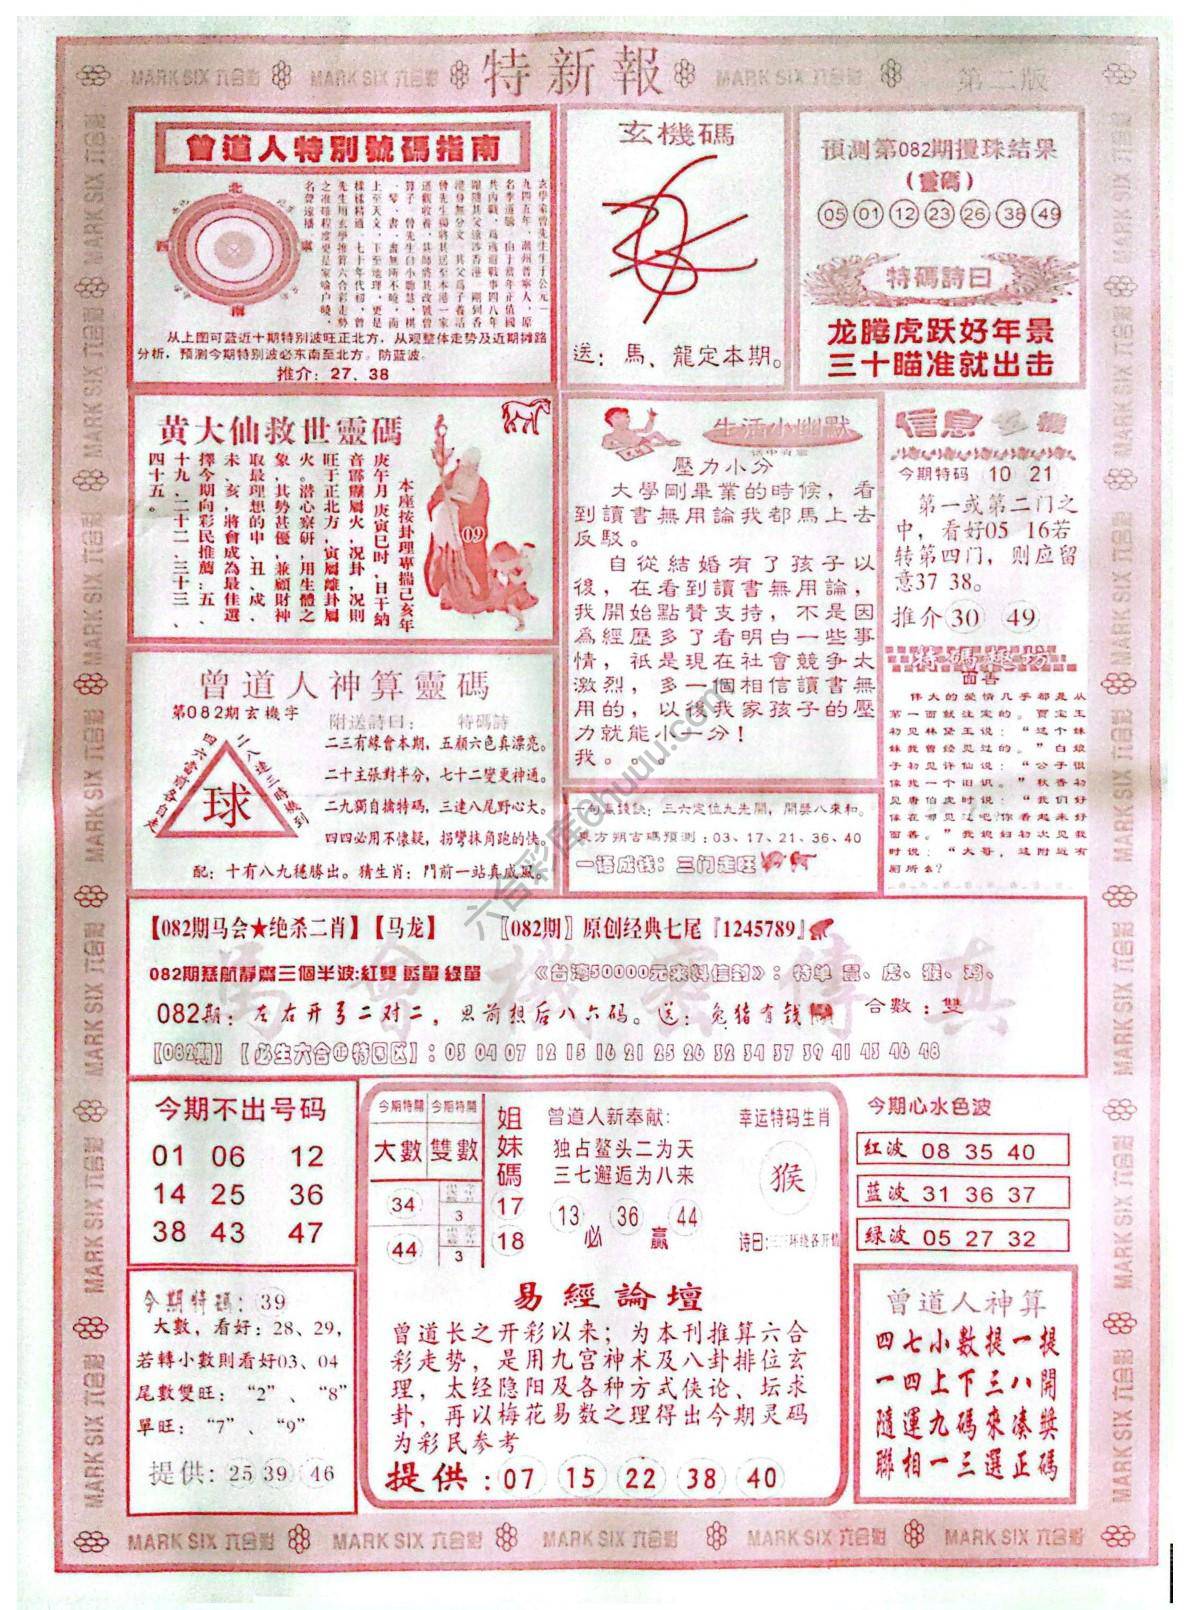 MARK SIX 六合彩
MARK SIX 六合彩
特新報
MARK SIX 六合彩
第二版
曾道人特別號碼指南
北
東
南
西
玄學家曾先生生于公元一
九四五年,潮州普寧人,原
名李道騰,由于當年正值國
共内戰,爲逃避戰事四八年
跟隨其父遠涉香港,剛到香
港身無分文,其父爲了養活
曾先生場將其送至本港一家
道觀收養,其師將其改號曾
算子,曾先生自小聰慧,棋
、琴、書、畫無所不曉,南
上至天文,下至地理,更是
樣樣精通,七十年代初,曾
先生用玄學推算六合彩走勢
之准確程度更是家喻户曉,
名聲遠播。
从上图可蓝近十期特别波旺正北方,从观整体走势及近期摊路
分析,预测今期特别波必东南至北方。防蓝波。
推介:27、38
玄機碼
送:馬、龍定本期。
預測第082期攪珠結果
(靈碼)
05 01 12 23 26 38 49
特碼詩曰
龙腾虎跃好年景
三十瞄准就出击
黄大仙救世靈碼
本座按卦理專揣己亥年
庚午月庚寅巳时,日干納
音霹靂屬火,况卦,况则
旺于正北方,寅屬離卦屬
火。潜心察研,用生體之
象,其勢甚優,兼顧財神
取最理想的申、丑、戌、
未、亥,將會成為最佳選
擇今期向彩民推薦:五、
十九、二十二、三十三、
四十五。
09
生活小幽默
壓力小分
大學剛畢業的時候,看
到讀書無用論我都馬上去
反駁。
自從結婚有了孩子以
後,在看到讀書無用論,
我開始點贊支持,不是因
爲經歷多了看明白一些事
情,衹是現在社會競争太
激烈,多一個相信讀書無
用的,以後我家孩子的壓
力就能小一分!
我。。
信息玄機
今期特码 10 21
第一或第二门之
中,看好05 16若
转第四门,则应留
意37 38。
推介 30 49
特碼趣坊
面善
伟大的爱情几乎都是从
第一面就注定的。贾宝玉
初见林黛玉说:“这个妹
妹我曾经见过的。”白娘
子初见许仙说:“公子很
像我一个旧识。”秋香初
见唐伯虎时说:“我们好
像在哪见过吧你看起来好
面善。”我媳妇初次见我
时说:“大哥,这附近有
厕所么?
曾道人神算靈碼
第082期玄機字
附送詩曰: 特碼詩
球
二三有緣會本期,五顔六色真漂亮。
二十主張對半分,七十二變更神通。
二九獨自擒特碼,三連八尾野心大。
四四必用不懷疑,拐彎抹角跑的快。
配:十有八九穩勝出。猜生肖:門前一站真威風。
一句贏錢訣:三六定位九先開,開獎八來和。
東方朔古碼預測:03、17、21、36、40
一语成钱:三门走旺
六合彩库6huuu.com
【082期马会★绝杀二肖】【马龙】
〖082期〗原创经典七尾『1245789』
馬會機密傳真
082期慈航靜齋三個半波:紅雙 藍單 綠單
《台湾50000元来料信封》:特单 鼠、虎、猴、鸡、
082期:左右开弓二对二,思前想后八六码。送:兔猪有钱
合數:雙
【082期】【必生六合⊕特围区】:03 04 07 12 15 16 21 25 26 32 34 37 39 41 43 46 48
今期不出号码
01 06 12
14 25 36
38 43 47
今期特開
今期特開
大數
雙數
34
3
44
3
姐妹碼
17
18
曾道人新奉献:
独占鳌头二为天
三七邂逅为八来
13 36 44
必 赢
幸运特码生肖
猴
诗曰:三三环绕各开情
今期心水色波
红波 08 35 40
蓝波 31 36 37
绿波 05 27 32
今期特碼:39
大數,看好:28、29,
若轉小數則看好03、04
尾數雙旺:“2”、“8”
單旺:“7”、“9”
提供:25 39 46
易經論壇
曾道长之开彩以来;为本刊推算六合
彩走势,是用九宫神术及八卦排位玄
理,太经隐阳及各种方式侠论、坛求
卦,再以梅花易数之理得出今期灵码
为彩民参考
提供:07 15 22 38 40
曾道人神算
四七小數提一提
一四上下三八開
隨運九碼來湊獎
聯相一三選正碼
MARK SIX 六合彩
MARK SIX 六合彩
MARK SIX 六合彩
MARK SIX 六合彩
MARK SIX 六合彩